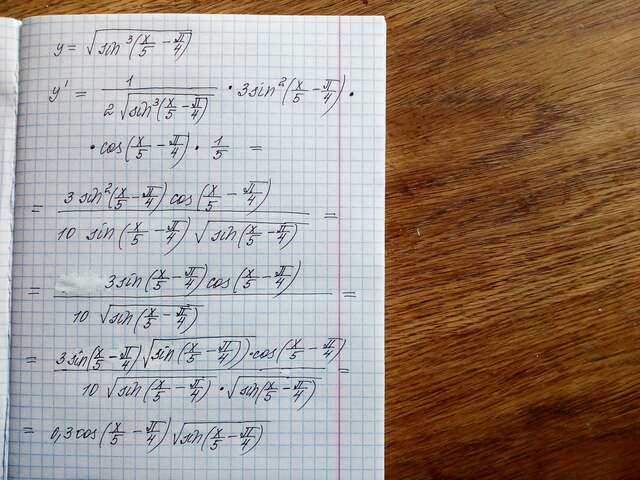 y = √(sin³(x/5 − π/4))
y' = 1/(2√(sin³(x/5 − π/4))) · 3sin²(x/5 − π/4) ·
· cos(x/5 − π/4) · 1/5 =
= (3 sin²(x/5 − π/4) cos(x/5 − π/4))/(10 sin(x/5 − π/4) √(sin(x/5 − π/4))) =
= (3sin(x/5 − π/4) cos(x/5 − π/4))/(10 √(sin(x/5 − π/4))) =
= (3sin(x/5 − π/4) √(sin(x/5 − π/4)) · cos(x/5 − π/4))/(10 √(sin(x/5 − π/4)) · √(sin(x/5 − π/4))) =
= 0,3cos(x/5 − π/4) √(sin(x/5 − π/4))